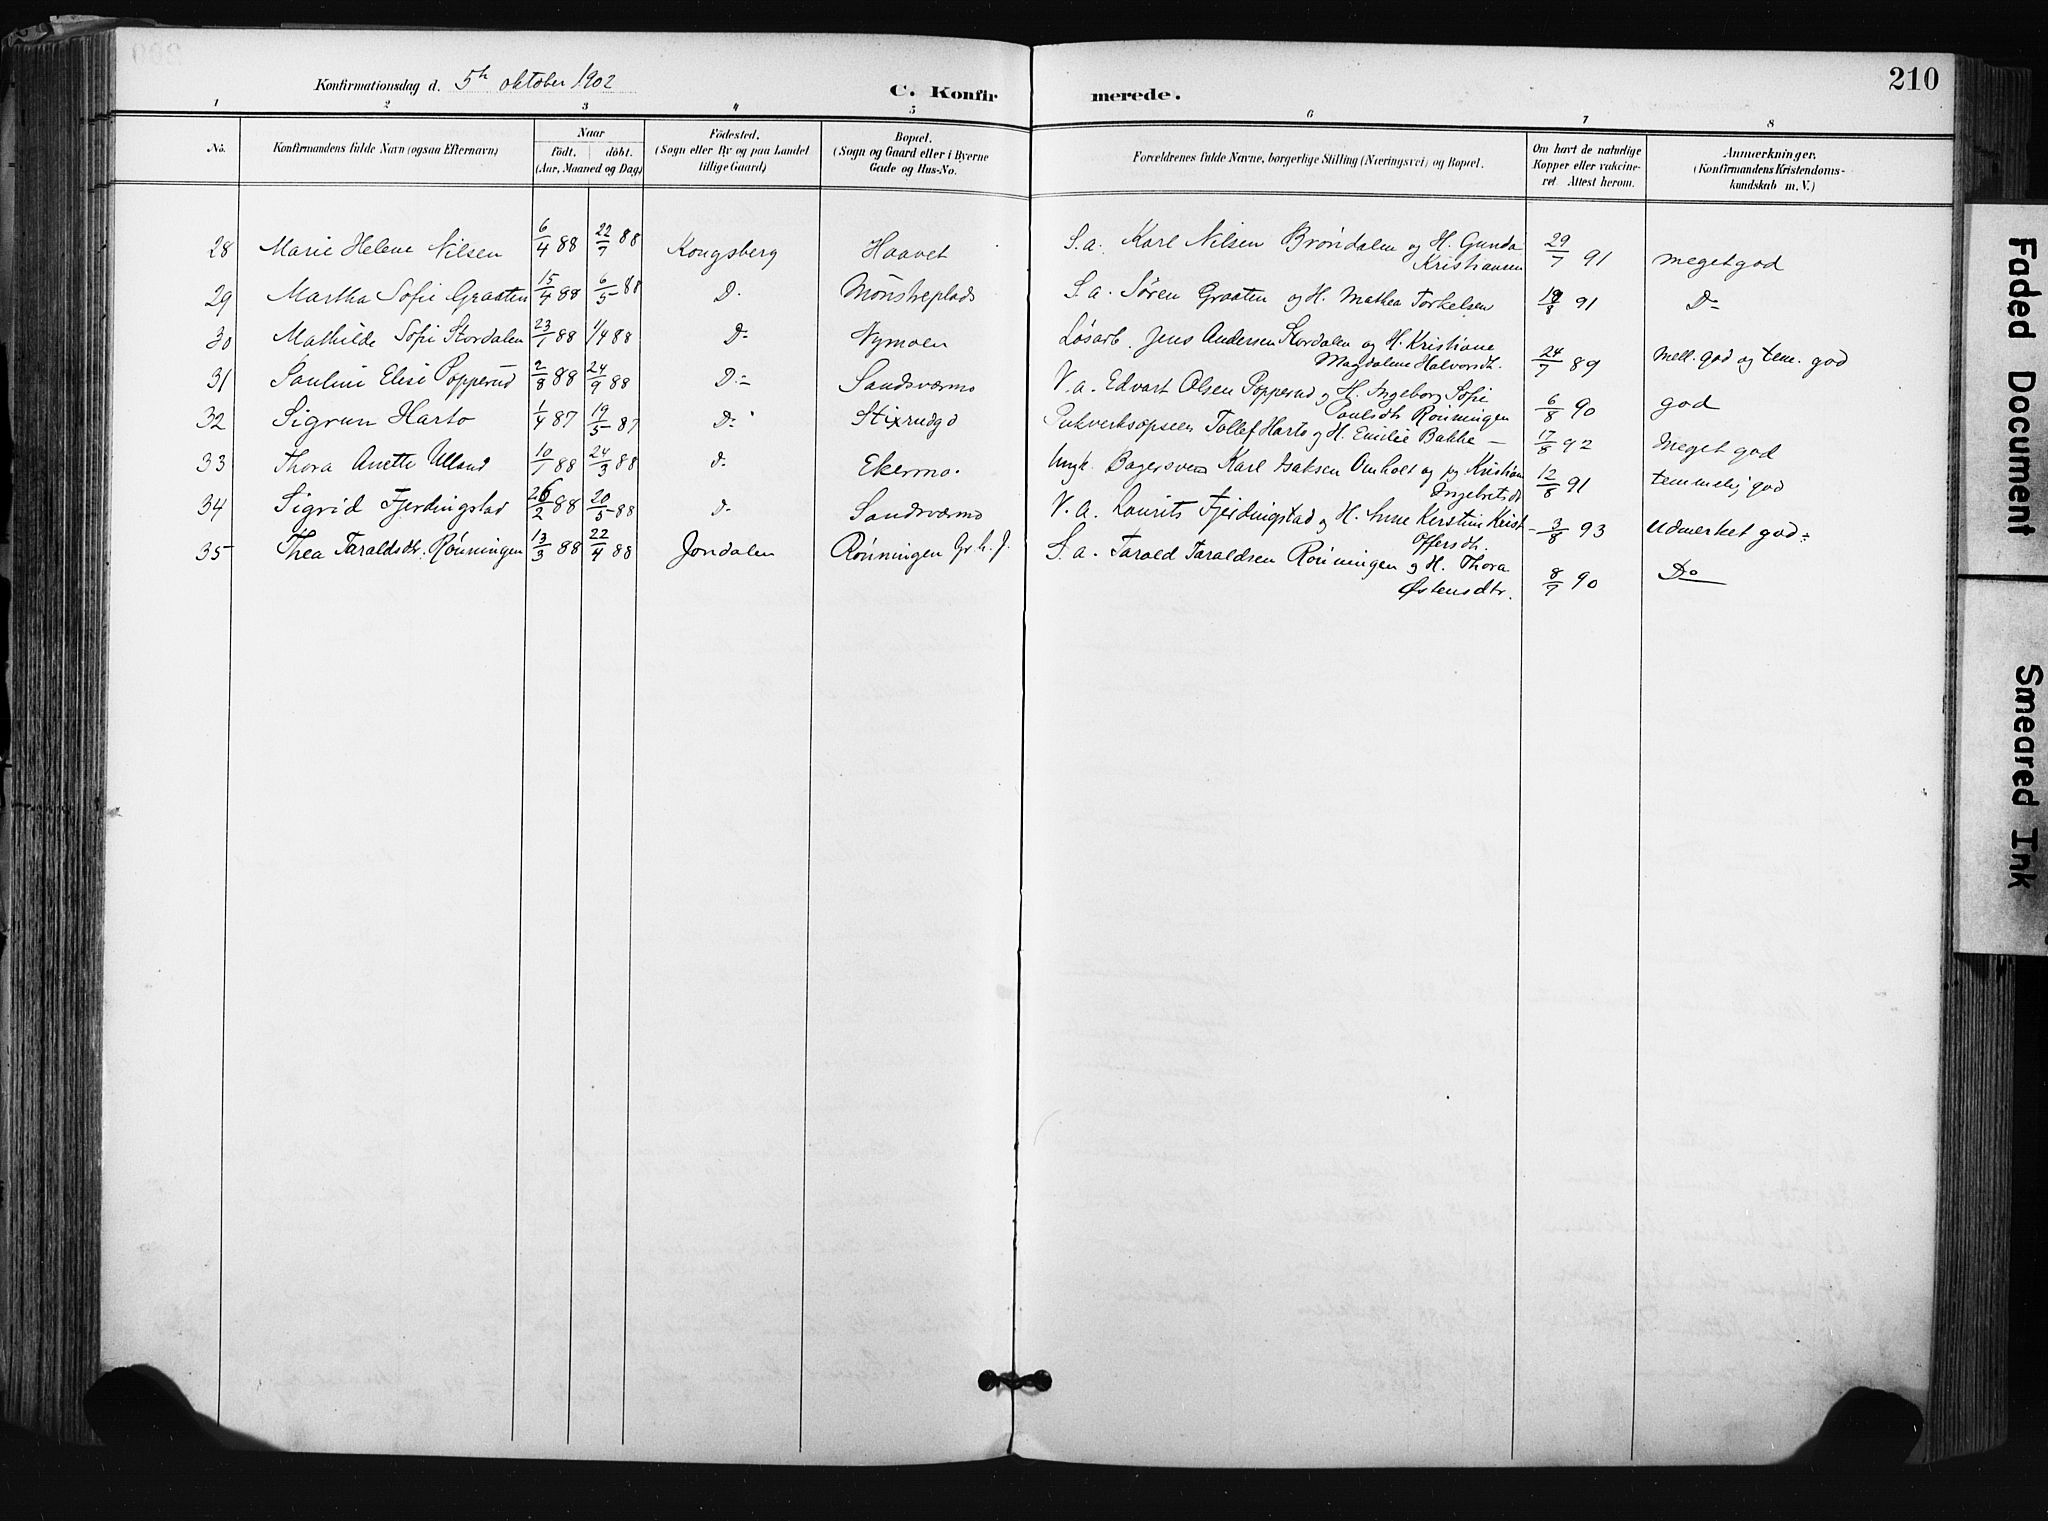 210
Konfirmationsdag d. 5te oktober 1902
C. Konfirmerede.
1 2 3 4 5 6 7 8
No. Konfirmandens fulde Navn (ogsaa Efternavn) Naar födt. döbt. (Aar, Maaned og Dag) Födested. (Sogn eller By og paa Landet tillige Gaard) Bopæl. (Sogn og Gaard eller i Byerne Gade og Hus-No. Forældrenes fulde Navne, borgerlige Stilling (Næringsvei) og Bopæl. Om havt de naturlige Kopper eller vakcineret Attest herom. Anmærkninger. (Konfirmandens Kristendomskundskab m. V.)
28 Marie Helene Nilsen 6/4 88 22/7 88 Kongsberg Haavet S.a. Karl Nilsen Brøndalen og H. Gunda Kristiansen 29/7 91 meget god
29 Martha Sofie Graaten 15/4 88 6/5 88 Do Mønstreplads S.a. Søren Graaten og H. Mathea Torkelsen /8 91 Do
30 Mathilde Sofie Stordalen 23/1 88 1/4 88 Do Nymoen Løsarb. Jens Andersen Stordalen og H. Kristiane Magdalene Halvorsdt. 24/7 89 Mell. god og tem. god
31 Pauline Elise Popperud 2/8 88 24/9 88 Do Sandsværmo V.a. Edvart Olsen Popperud og H. Ingeborg Sofie Paulsdt Rønningen 6/8 90 god
32 Sigrun Harto 1/4 87 19/5 87 Do Stixrudgd Tollef Harto og H. Emilie Bakke 17/8 92 Meget god
33 Thora Anette Ulland 10/1 88 24/3 88 Do Ekermo. Ungk. Bagersvend Karl Isaksen Omholt og pg Kristiane Ingebretsdt 12/8 91 temmelig god
34 Sigrid Fjerdingstad 26/2 88 20/5 88 Do Sandsværmo V.a. Laurits Fjerdingstad og H. Anne Kerstine Kristoffersdt. 3/8 93 Udmerket god
35 Thea Taraldsdtr. Rønningen 13/3 88 22/4 88 Jondalen Rønningen Gr. h. J. S.a. Tarald Taraldsen Rønningen og H. Thora Østensdtr. 8/7 90 Do
Faded Document
Smeared Ink